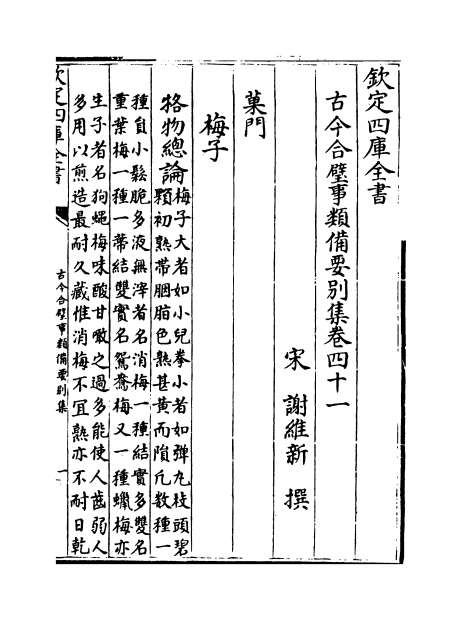 欽定四庫全書
古今合璧事類備要別集卷四十一
宋　謝維新　撰
菓門
梅子
格物總論
梅子大者如小兒拳小者如彈丸枝頭碧
顆初熟帶胭脂色熟甚黃而隕凢數種一
種自小鬆脆多液無滓者名消梅一種結實多雙名
重葉梅一種一蒂結雙實名鴛鴦梅又一種蠟梅亦
生子者名狗蠅梅味酸甘噉之過多能使人齒弱人
多用以煎造最耐久藏惟消梅不冝熟亦不耐日乾
欽定四庫全書
古今合璧事類備要別集
一